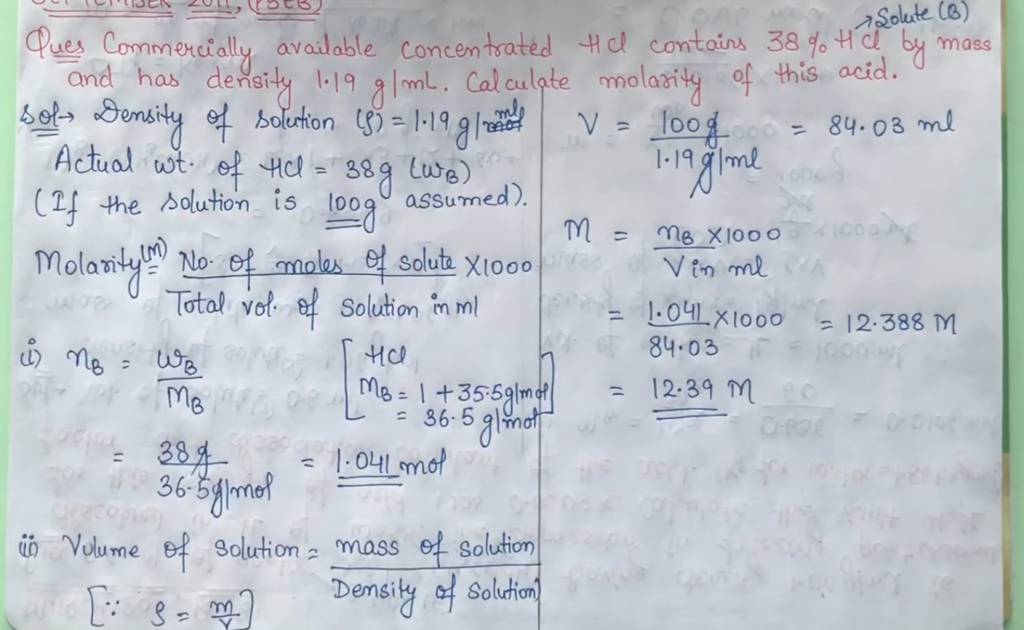 SEPTEMBER 2011, (PSEB)
→Solute (B)
Ques Commercially available concentrated HCl contains 38% HCl by mass
and has density 1.19 g/mL. Calculate molarity of this acid.
Sol→ Density of solution (ρ) = 1.19 g/ml
Actual wt. of HCl = 38g (WB)
(If the solution is 100g assumed).
Molarity(M) = No. of moles of solute X1000
Total vol. of solution in ml
(i) nB = WB
MB
[HCl
MB = 1 + 35.5g/mol
= 36.5 g/mol]
= 38g = 1.041 mol
36.5g/mol
(ii) Volume of solution = mass of solution
Density of solution
[∵ ρ = m
V]
V = 100g = 84.03 ml
1.19g/ml
M = nB X1000
V in ml
= 1.041 X1000 = 12.388 M
84.03
= 12.39 M